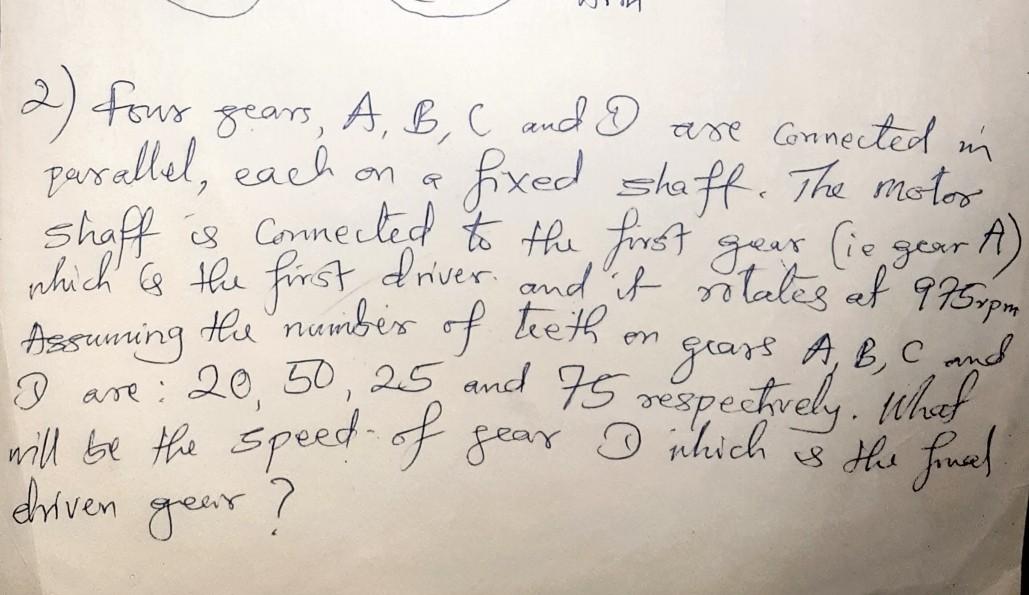 2) Four gears, A, B, C and D are connected in
parallel, each on a fixed shaff. The motor
shaff is connected to the first gear (ie gear A)
which is the first driver. and it rotates at 975rpm
Assuming the number of teeth on gears A, B, C and
D are: 20, 50, 25 and 75 respectively. What
will be the speed of gear D which is the final
driven gear?